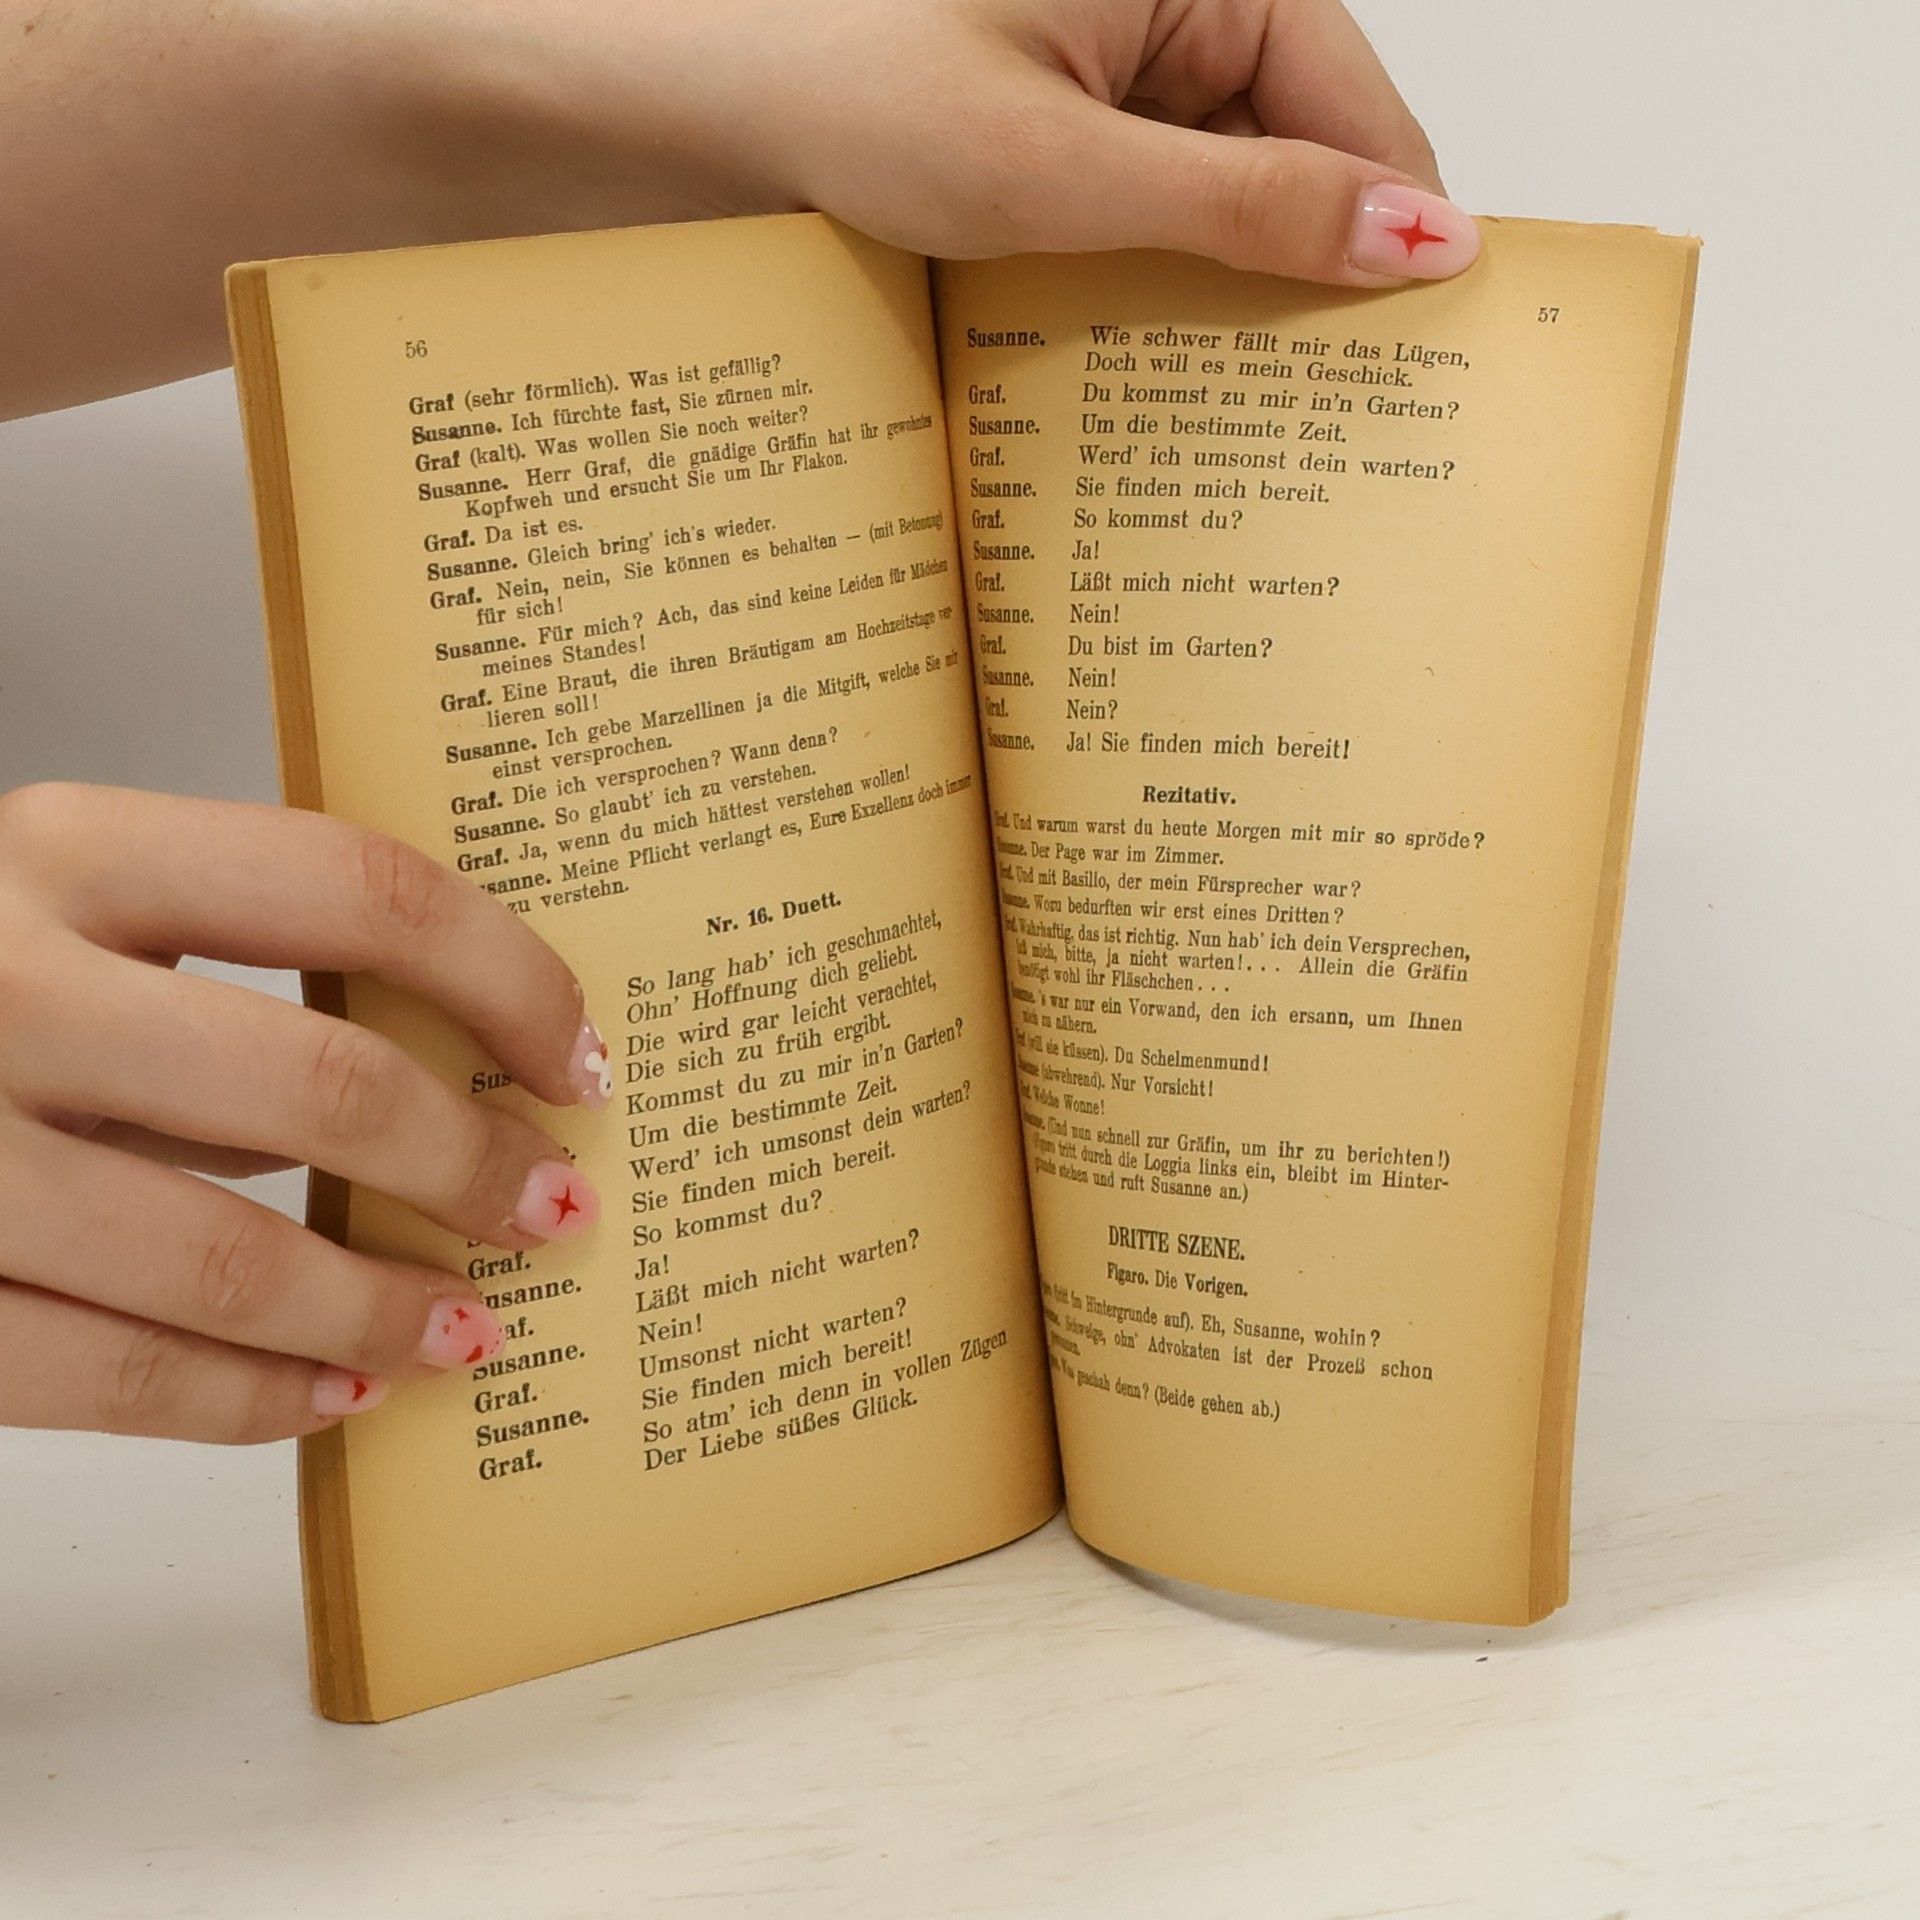 56
Graf (sehr förmlich). Was ist gefällig?
Susanne. Ich fürchte fast, Sie zürnen mir.
Graf (kalt). Was wollen Sie noch weiter?
Susanne. Herr Graf, die gnädige Gräfin hat ihr gewohntes
Kopfweh und ersucht Sie um Ihr Flakon.
Graf. Da ist es.
Susanne. Gleich bring' ich's wieder.
Graf. Nein, nein, Sie können es behalten — (mit Betonung)
für sich!
Susanne. Für mich? Ach, das sind keine Leiden für Mädchen
meines Standes!
Graf. Eine Braut, die ihren Bräutigam am Hochzeitstage ver-
lieren soll!
Susanne. Ich gebe Marzellinen ja die Mitgift, welche Sie mir
einst versprochen.
Graf. Die ich versprochen? Wann denn?
Susanne. So glaubt' ich zu verstehen.
Graf. Ja, wenn du mich hättest verstehen wollen!
sanne. Meine Pflicht verlangt es, Eure Exzellenz doch immer
zu verstehn.
Nr. 16. Duett.
So lang hab' ich geschmachtet,
Ohn' Hoffnung dich geliebt.
Die wird gar leicht verachtet,
Sus Die sich zu früh ergibt.
Kommst du zu mir in'n Garten?
Um die bestimmte Zeit.
Werd' ich umsonst dein warten?
Sie finden mich bereit.
So kommst du?
Graf. Ja!
usanne. Läßt mich nicht warten?
af. Nein!
Susanne. Umsonst nicht warten?
Graf. Sie finden mich bereit!
Susanne. So atm' ich denn in vollen Zügen
Graf. Der Liebe süßes Glück.
57
Susanne. Wie schwer fällt mir das Lügen,
Doch will es mein Geschick.
Graf. Du kommst zu mir in'n Garten?
Susanne. Um die bestimmte Zeit.
Graf. Werd' ich umsonst dein warten?
Susanne. Sie finden mich bereit.
Graf. So kommst du?
Susanne. Ja!
Graf. Läßt mich nicht warten?
Susanne. Nein!
Graf. Du bist im Garten?
Susanne. Nein!
Graf. Nein?
Susanne. Ja! Sie finden mich bereit!
Rezitativ.
Graf. Und warum warst du heute Morgen mit mir so spröde?
Susanne. Der Page war im Zimmer.
Graf. Und mit Basilio, der mein Fürsprecher war?
Susanne. Wozu bedurften wir erst eines Dritten?
Graf. Wahrhaftig, das ist richtig. Nun hab' ich dein Versprechen,
laß mich, bitte, ja nicht warten!... Allein die Gräfin
benötigt wohl ihr Fläschchen...
Susanne. 's war nur ein Vorwand, den ich ersann, um Ihnen
mich zu nähern.
Graf (will sie küssen). Du Schelmenmund!
Susanne (abwehrend). Nur Vorsicht!
Graf. Welche Wonne!
Susanne. (Und nun schnell zur Gräfin, um ihr zu berichten!)
(Figaro tritt durch die Loggia links ein, bleibt im Hinter-
grunde stehen und ruft Susanne an.)
DRITTE SZENE.
Figaro. Die Vorigen.
im Hintergrunde auf). Eh, Susanne, wohin?
Schweige, ohn' Advokaten ist der Prozeß schon
gewonnen.
Was geschah denn? (Beide gehen ab.)